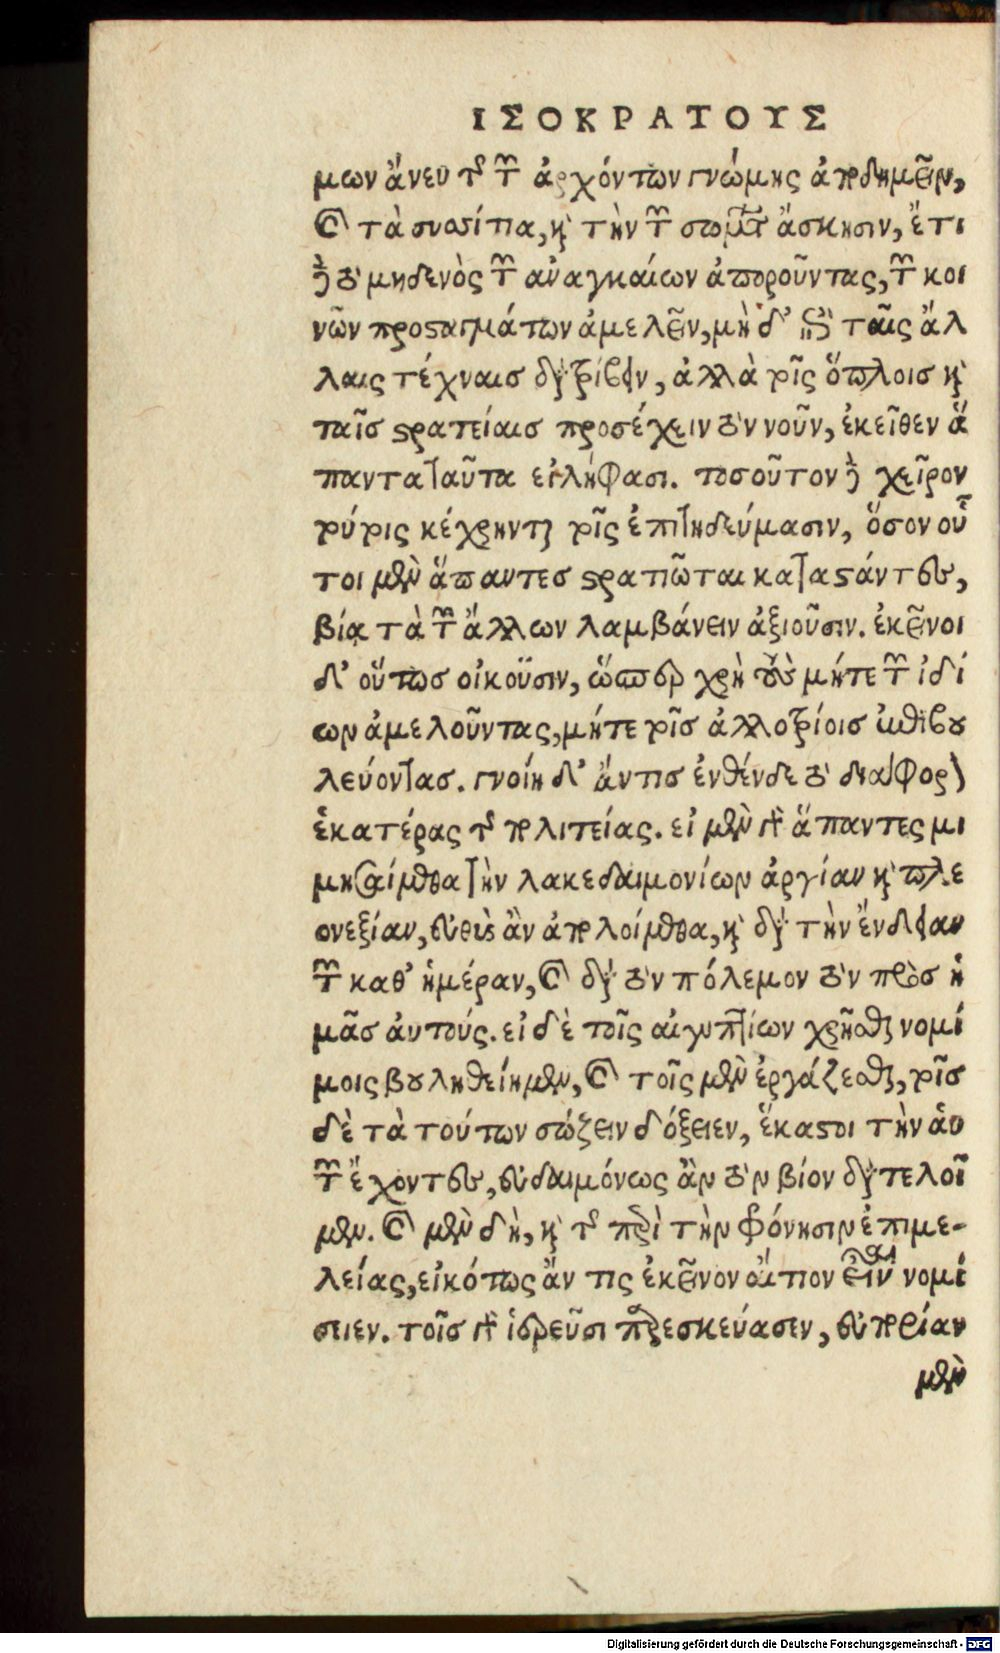 ΙΣΟΚΡΑΤΟΥΣ
μων ἄνευ τῆς τῶν ἀρχόντων γνώμης ἀποδημεῖν,
καὶ τὰ συσσίτια, καὶ τὴν τῶν σωμάτων ἄσκησιν, ἔτι
δὲ τὸ μηδενὸς τῶν ἀναγκαίων ἀποροῦντας, τῶν κοι
νῶν προσταγμάτων ἀμελεῖν, μὴ δ' ἐπὶ ταῖς ἄλ
λαις τέχναις διατρίβειν, ἀλλὰ τοῖς ὅπλοις καὶ
ταῖς στρατείαις προσέχειν τὸν νοῦν, ἐκεῖθεν ἅ
παντα ταῦτα εἰλήφασι. τοσοῦτον δὲ χεῖρον
τούτοις κέχρηνται τοῖς ἐπιτηδεύμασιν, ὅσον οὗ
τοι μὲν ἅπαντες στρατιῶται καταστάντες,
βίᾳ τὰ τῶν ἄλλων λαμβάνειν ἀξιοῦσιν. ἐκεῖνοι
δ' οὕτως οἰκοῦσιν, ὥσπερ χρὴ τοὺς μήτε τῶν ἰδί
ων ἀμελοῦντας, μήτε τοῖς ἀλλοτρίοις ἐπιβου
λεύοντας. γνοίη δ' ἄν τις ἐνθένδε τὸ διάφορον
ἑκατέρας τῆς πολιτείας. εἰ μὲν γὰρ ἅπαντες μι
μησαίμεθα τὴν λακεδαιμονίων ἀργίαν καὶ πλε
ονεξίαν, εὐθὺς ἂν ἀπολοίμεθα, καὶ διὰ τὴν ἔνδειαν
τῶν καθ' ἡμέραν, καὶ διὰ τὸν πόλεμον τὸν πρὸς ἡ
μᾶς αὐτούς. εἰ δὲ τοῖς αἰγυπτίων χρῆσθαι νομί
μοις βουληθείημεν, καὶ τοῖς μὲν ἐργάζεσθαι, τοῖς
δὲ τὰ τούτων σώζειν δόξειεν, ἕκαστοι τὴν αὑ
τῶν ἔχοντες, εὐδαιμόνως ἂν τὸν βίον διατελοῖ
μεν. καὶ μὲν δὴ, καὶ τῆς περὶ τὴν φρόνησιν ἐπιμε-
λείας, εἰκότως ἄν τις ἐκεῖνον αἴτιον εἶναι νομί
σειεν. τοῖς γὰρ ἱερεῦσι παρεσκεύασεν, εὐπορίαν
μὲν
Digitalisierung gefördert durch die Deutsche Forschungsgemeinschaft - DFG